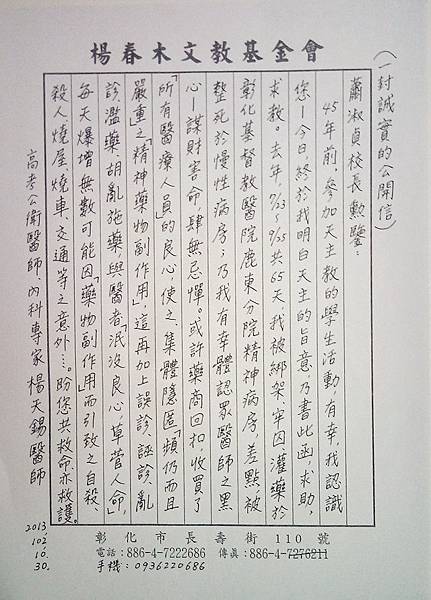 楊春木文教基金會
(一封誠實的公開信)
蕭淑貞校長勲鑒:
45年前,參加天主教的學生活動,有幸,我認識
您—今日,終於我明白天主的旨意,乃書此函,求助,
求教。去年,7/23~9/25共65天,我被綁架,牢囚灌藥於
彰化基督教醫院鹿東分院精神病房,差點被
整死於慢性病房;乃我有幸體認眾醫師之黑
心—謀財害命,肆無忌憚。或許藥商回扣,收買了
「所有醫療人員的良心,使之集體隱匿「頻仍而且
嚴重」之「精神藥物副作用」,這再加上誤診、誣診、亂
診、濫藥、胡亂施藥,與醫者「泯沒良心,草菅人命」,
每天爆增無數可能因「藥物副作用」而引致之自殺、
殺人、燒屋、燒車、交通等之意外…。盼您共救命,亦救護。
高考公衛醫師、內科專家 楊天錫醫師
2013.
102.
10.
30.
彰化市長壽街110號
電話:886-4-7222686 傳真:886-4-7276211
手機:0936220686